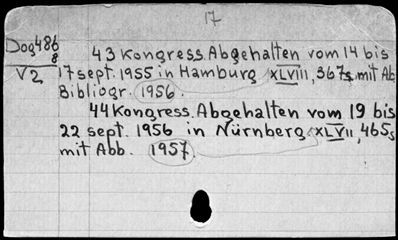 17
Dog486
8
V2
43 Kongress. Abgehalten vom 14 bis
17 sept. 1955 in Hamburg XLVIII, 367s mit Ab
Bibliogr. 1956.
44 Kongress. Abgehalten vom 19 bis
22 sept. 1956 in Nürnberg XLVII, 465s
mit Abb. 1957.